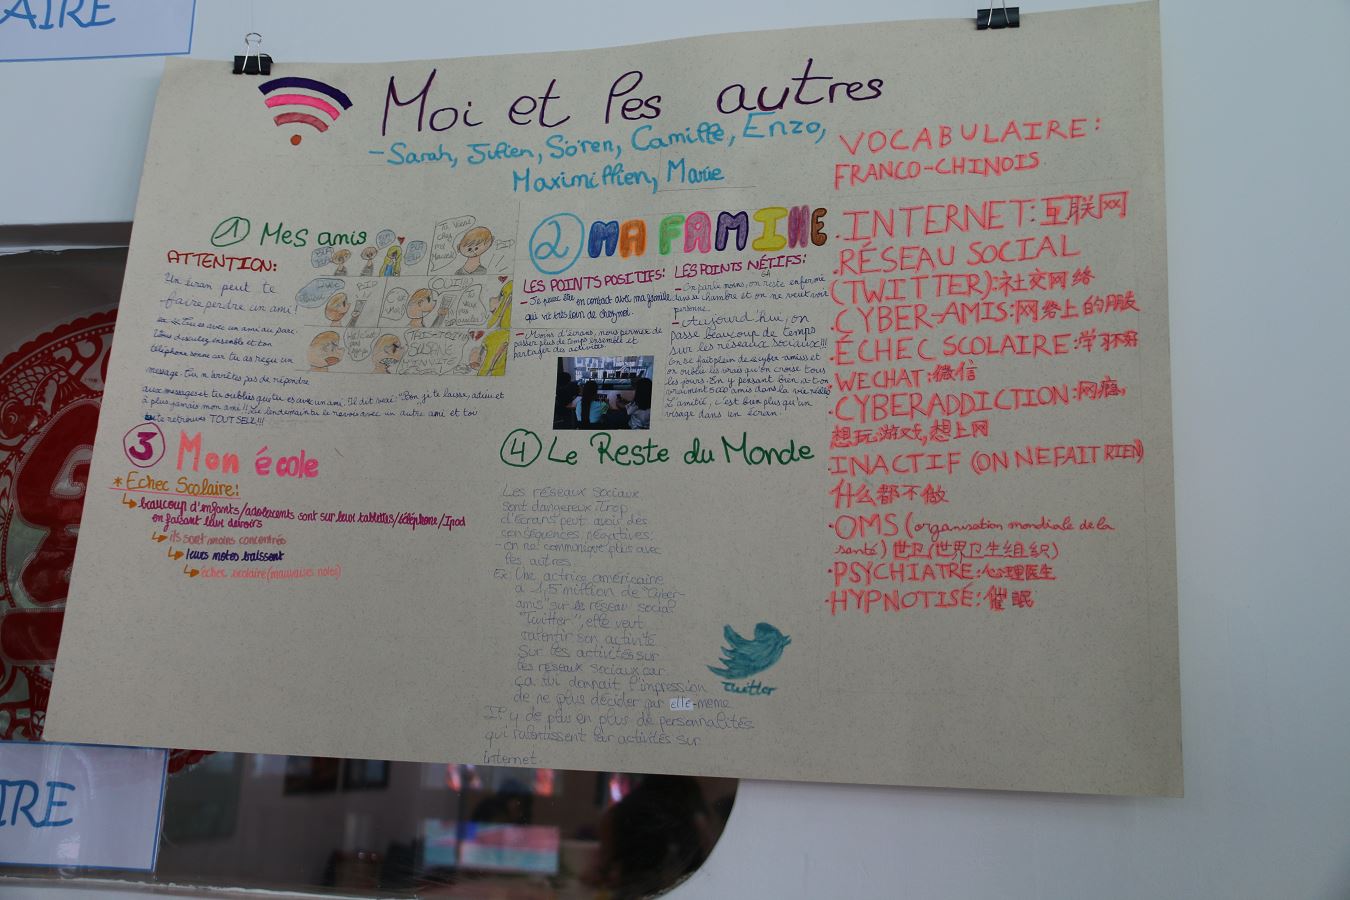 AIRE
Moi et les autres
-Sarah, Julien, Sören, Camille, Enzo,
Maximillien, Marie
① Mes amis
ATTENTION:
Un écran peut te
faire perdre un ami!
Tu es avec un ami au parc.
Vous discutez ensemble et ton
téléphone sonne car tu as reçu un
message. Tu n'arrêtes pas de répondre
aux messages et tu oublies que tu es avec un ami. Il dit
à plus jamais mon ami!! Le lendemain tu le revois avec un autre ami et toi
te retrouves TOUT SEUL!!!
BIP
BIP
OUI!
② MA FAMILLE
LES POINTS POSITIFS:
- Je peux être en contact avec ma famille
qui vit très loin de chez moi.
- Moins d'écrans, nous permet de
passer plus de temps ensemble et
partager des activités.
LES POINTS NÉTIFS:
GA
- On parle moins, on reste enfermé
dans sa chambre et on ne veut voir
personne.
- Aujourd'hui, on
passe beaucoup de temps
sur les réseaux sociaux!!!
On se fait plein de cyber-amis et
on oublie les vrais qu'on croise tous
les jours. En y pensant bien a-t-on
vraiment amis dans la vie réelle
L'amitié, c'est bien plus qu'un
visage dans un écran.
③ Mon école
* Echec Scolaire:
↳ beaucoup d'enfants/adolescents sont sur leur tablettes/téléphone/Ipod
en faisant leur devoirs
↳ ils sont moins concentrés
↳ leurs notes baissent
↳ échec scolaire (mauvaises notes)
④ Le Reste du Monde
Les réseaux sociaux
sont dangereux: trop
d'écrans peut avoir des
conséquences négatives:
- on ne communique plus avec
les autres.
Ex: Une actrice américaine
a 1,5 million de "Cyber-
amis" sur le réseau social
"Twitter", elle veut
ralentir son activité
sur les activités sur
les réseaux sociaux car
ça lui donnait l'impression
de ne plus décider par elle-même
Il y de plus en plus de personnalités
qui ralentissent leur activités sur
internet.
Twitter
VOCABULAIRE:
FRANCO-CHINOIS
.INTERNET:互联网
.RÉSEAU SOCIAL
(TWITTER):社交网络
.CYBER-AMIS:网络上的朋友
.ÉCHEC SCOLAIRE:学坏
.WECHAT:微信
.CYBERADDICTION:网瘾,
想玩游戏,想上网
.INACTIF (ON NE FAIT RIEN)
什么都不做
.OMS (organisation mondiale de la
santé) 世卫(世界卫生组织)
.PSYCHIATRE:心理医生
.HYPNOTISÉ:催眠
IRE